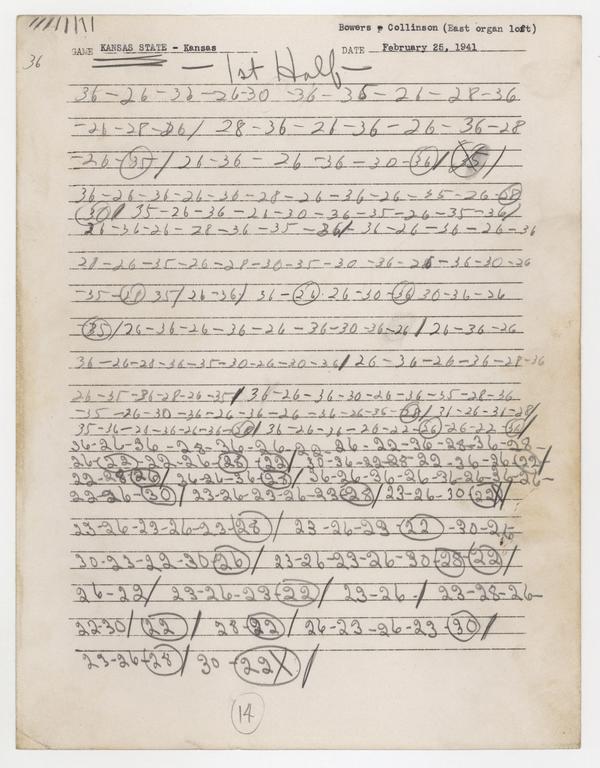 Bowers & Collinson (East organ loft)
GAME KANSAS STATE - Kansas DATE February 25, 1941
36
- 1st Half -
36-26-36-26-30-36-35-26-28-36
-26-28-26/ 28-36-26-36-26-36-28
-26-35-/ 26-36-26-36-30-36/ 35/
36-26-36-26-36-28-26-36-26-35-26-28
30/ 35-26-36-26-30-36-35-26-35-36/
26-36-26-28-36-35-36/ 36-26-36-26-36
28-26-35-26-28-30-35-30-36-26-36-30-26
-35-28 35/26-36/ 36-26-26-30-36 30-36-26
-35/26-36-26-36-26-36-30-36-26/26-36-26
36-26-28-36-35-30-26-30-36/26-36-26-36-28-36
26-35-36-28-26-35/ 36-26-36-30-26-36-35-28-36
-35-26-30-36-26-36-26-36-26-36-28/ 31-26-31-28/
35-36-26-36-26-36-30/ 36-26-36-26-22-36-26-22-36/
36-26-36-28-36-26-22-26-22-36-28-36-28-
26-22-22-26-28-22/ 30-36-22-28-22-36-26-22/-
22-28-26/ 26-26-36-28/ 36-26-36-26-36-26-36-26-
22-26-30/ 23-26-23-26-23-28/23-26-30-22X/
23-26-23-26-23-28/ 23-26-23-22-30-26
30-23-22-30-26/ 23-26-23-26-30-28-22/
26-22/ 23-26-23-22/ 23-26-/ 23-28-26-
22-30/ 22/ 28-22/26-23-26-23-30/
23-26-28/ 30-22X/
14